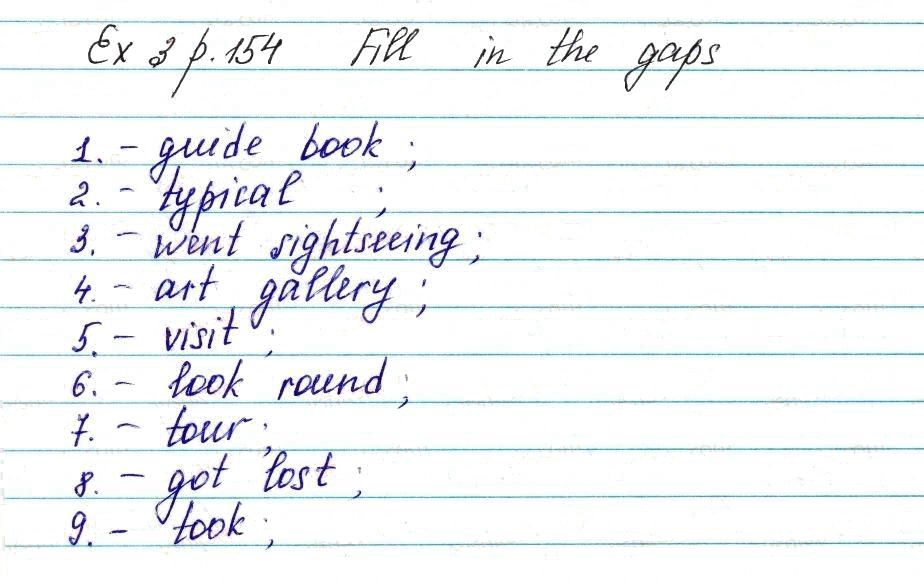 Ex 3 p. 154 Fill in the gaps
1. - guide book ;
2. - typical ;
3. - went sightseeing ;
4. - art gallery ;
5. - visit ;
6. - look round ;
7. - tour ;
8. - got lost ;
9. - took ;